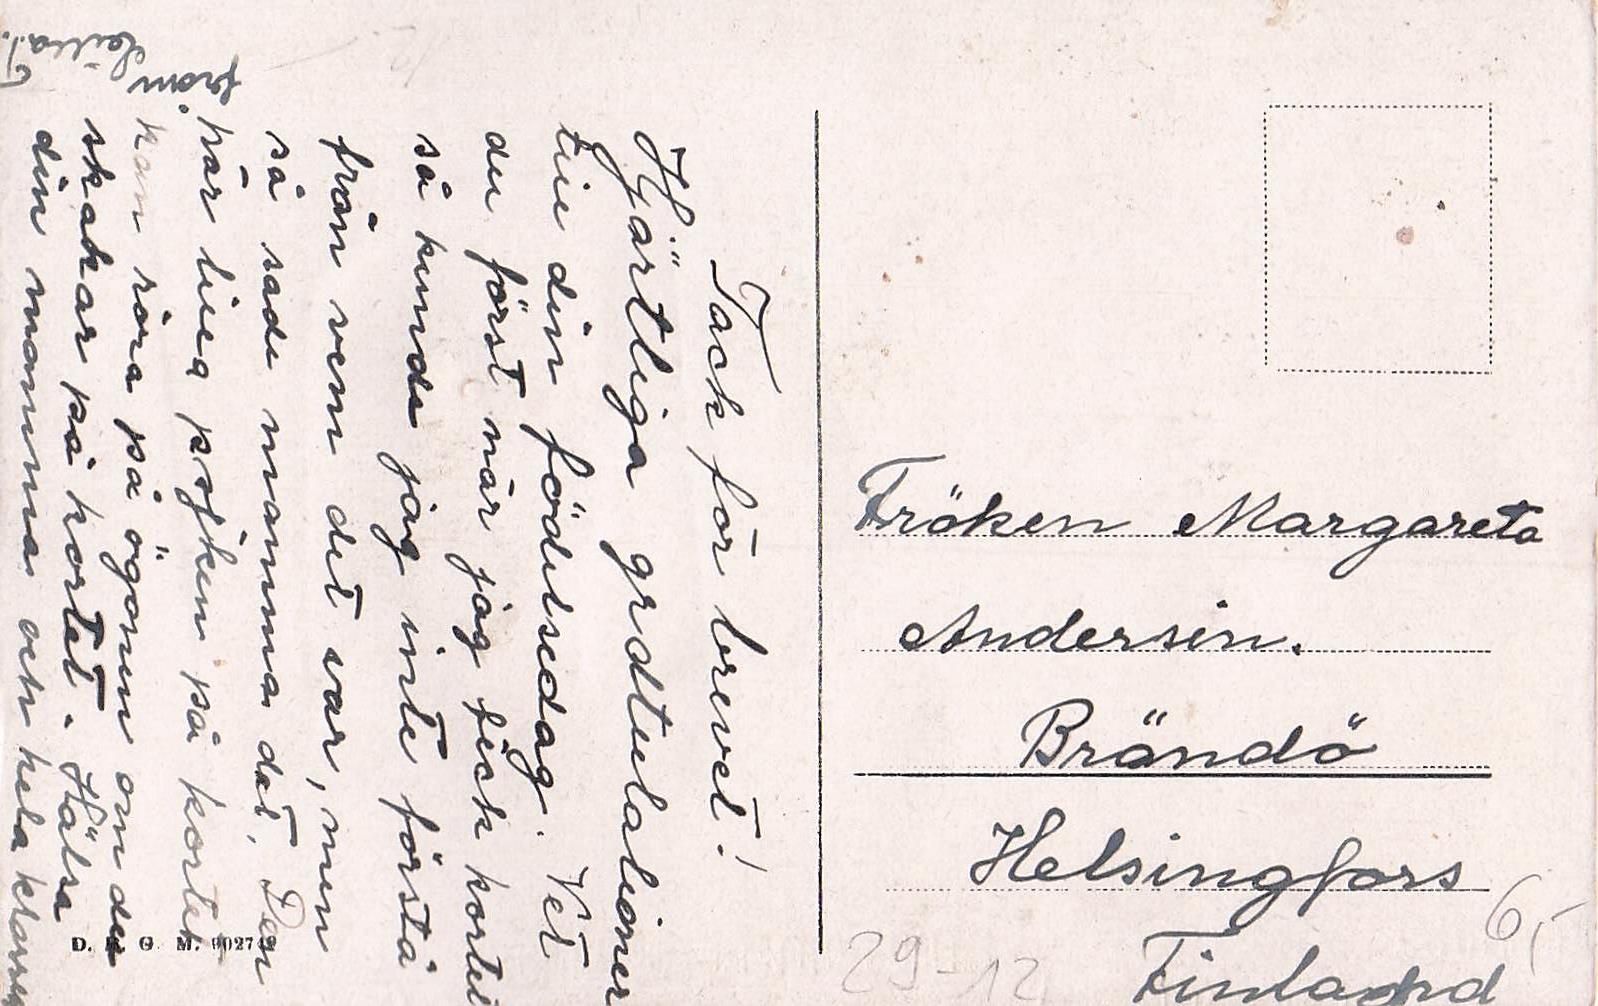 Tack för brevet!
Hjärtliga gratulationer
till din födelsedag. Vet
du först när jag fick kortet
så kunde jag inte förstå
från vem det var, men
så sade mamma det. Den
här lilla pojken på kortet
kan röra på ögonen om du
skakar på kortet. Hälsa
din mamma och hela
från
Fröken Margareta
Andersin.
Brändö
Helsingfors
Finland
29-12
6,-
D. R. G. M.